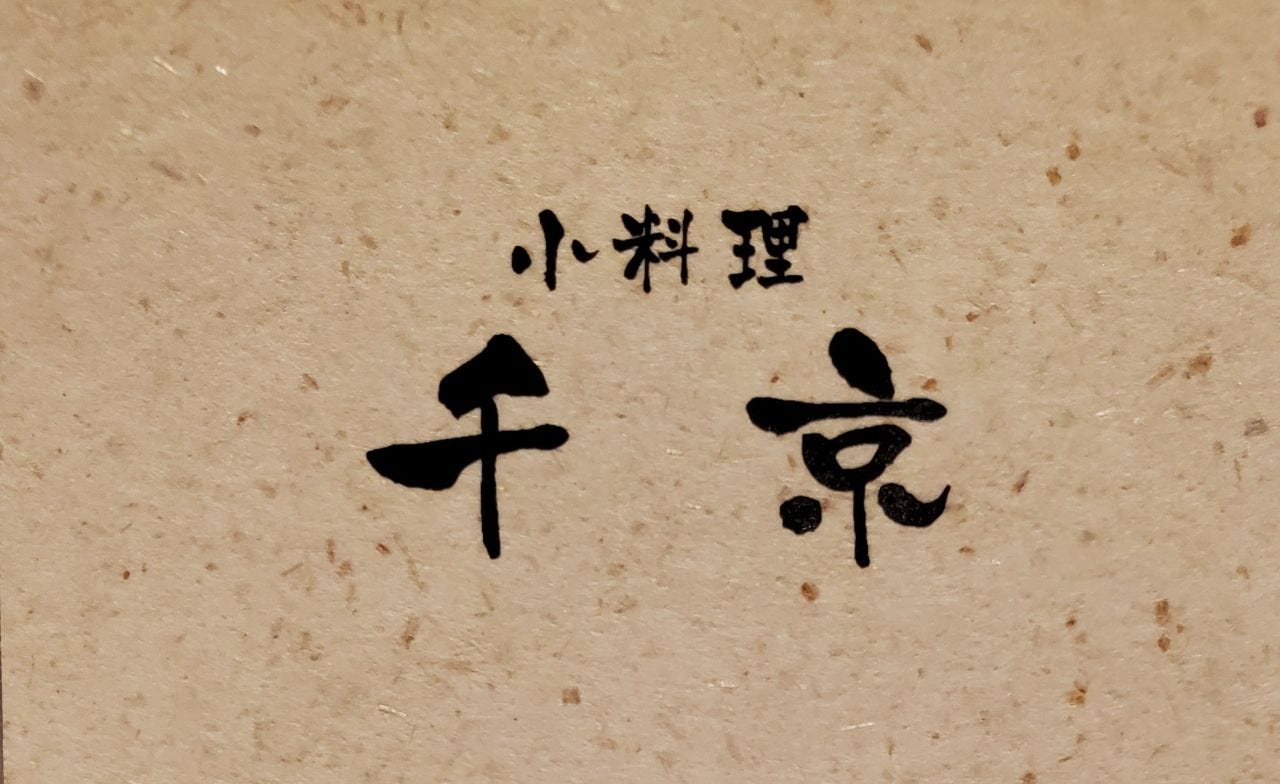 小料理
千京